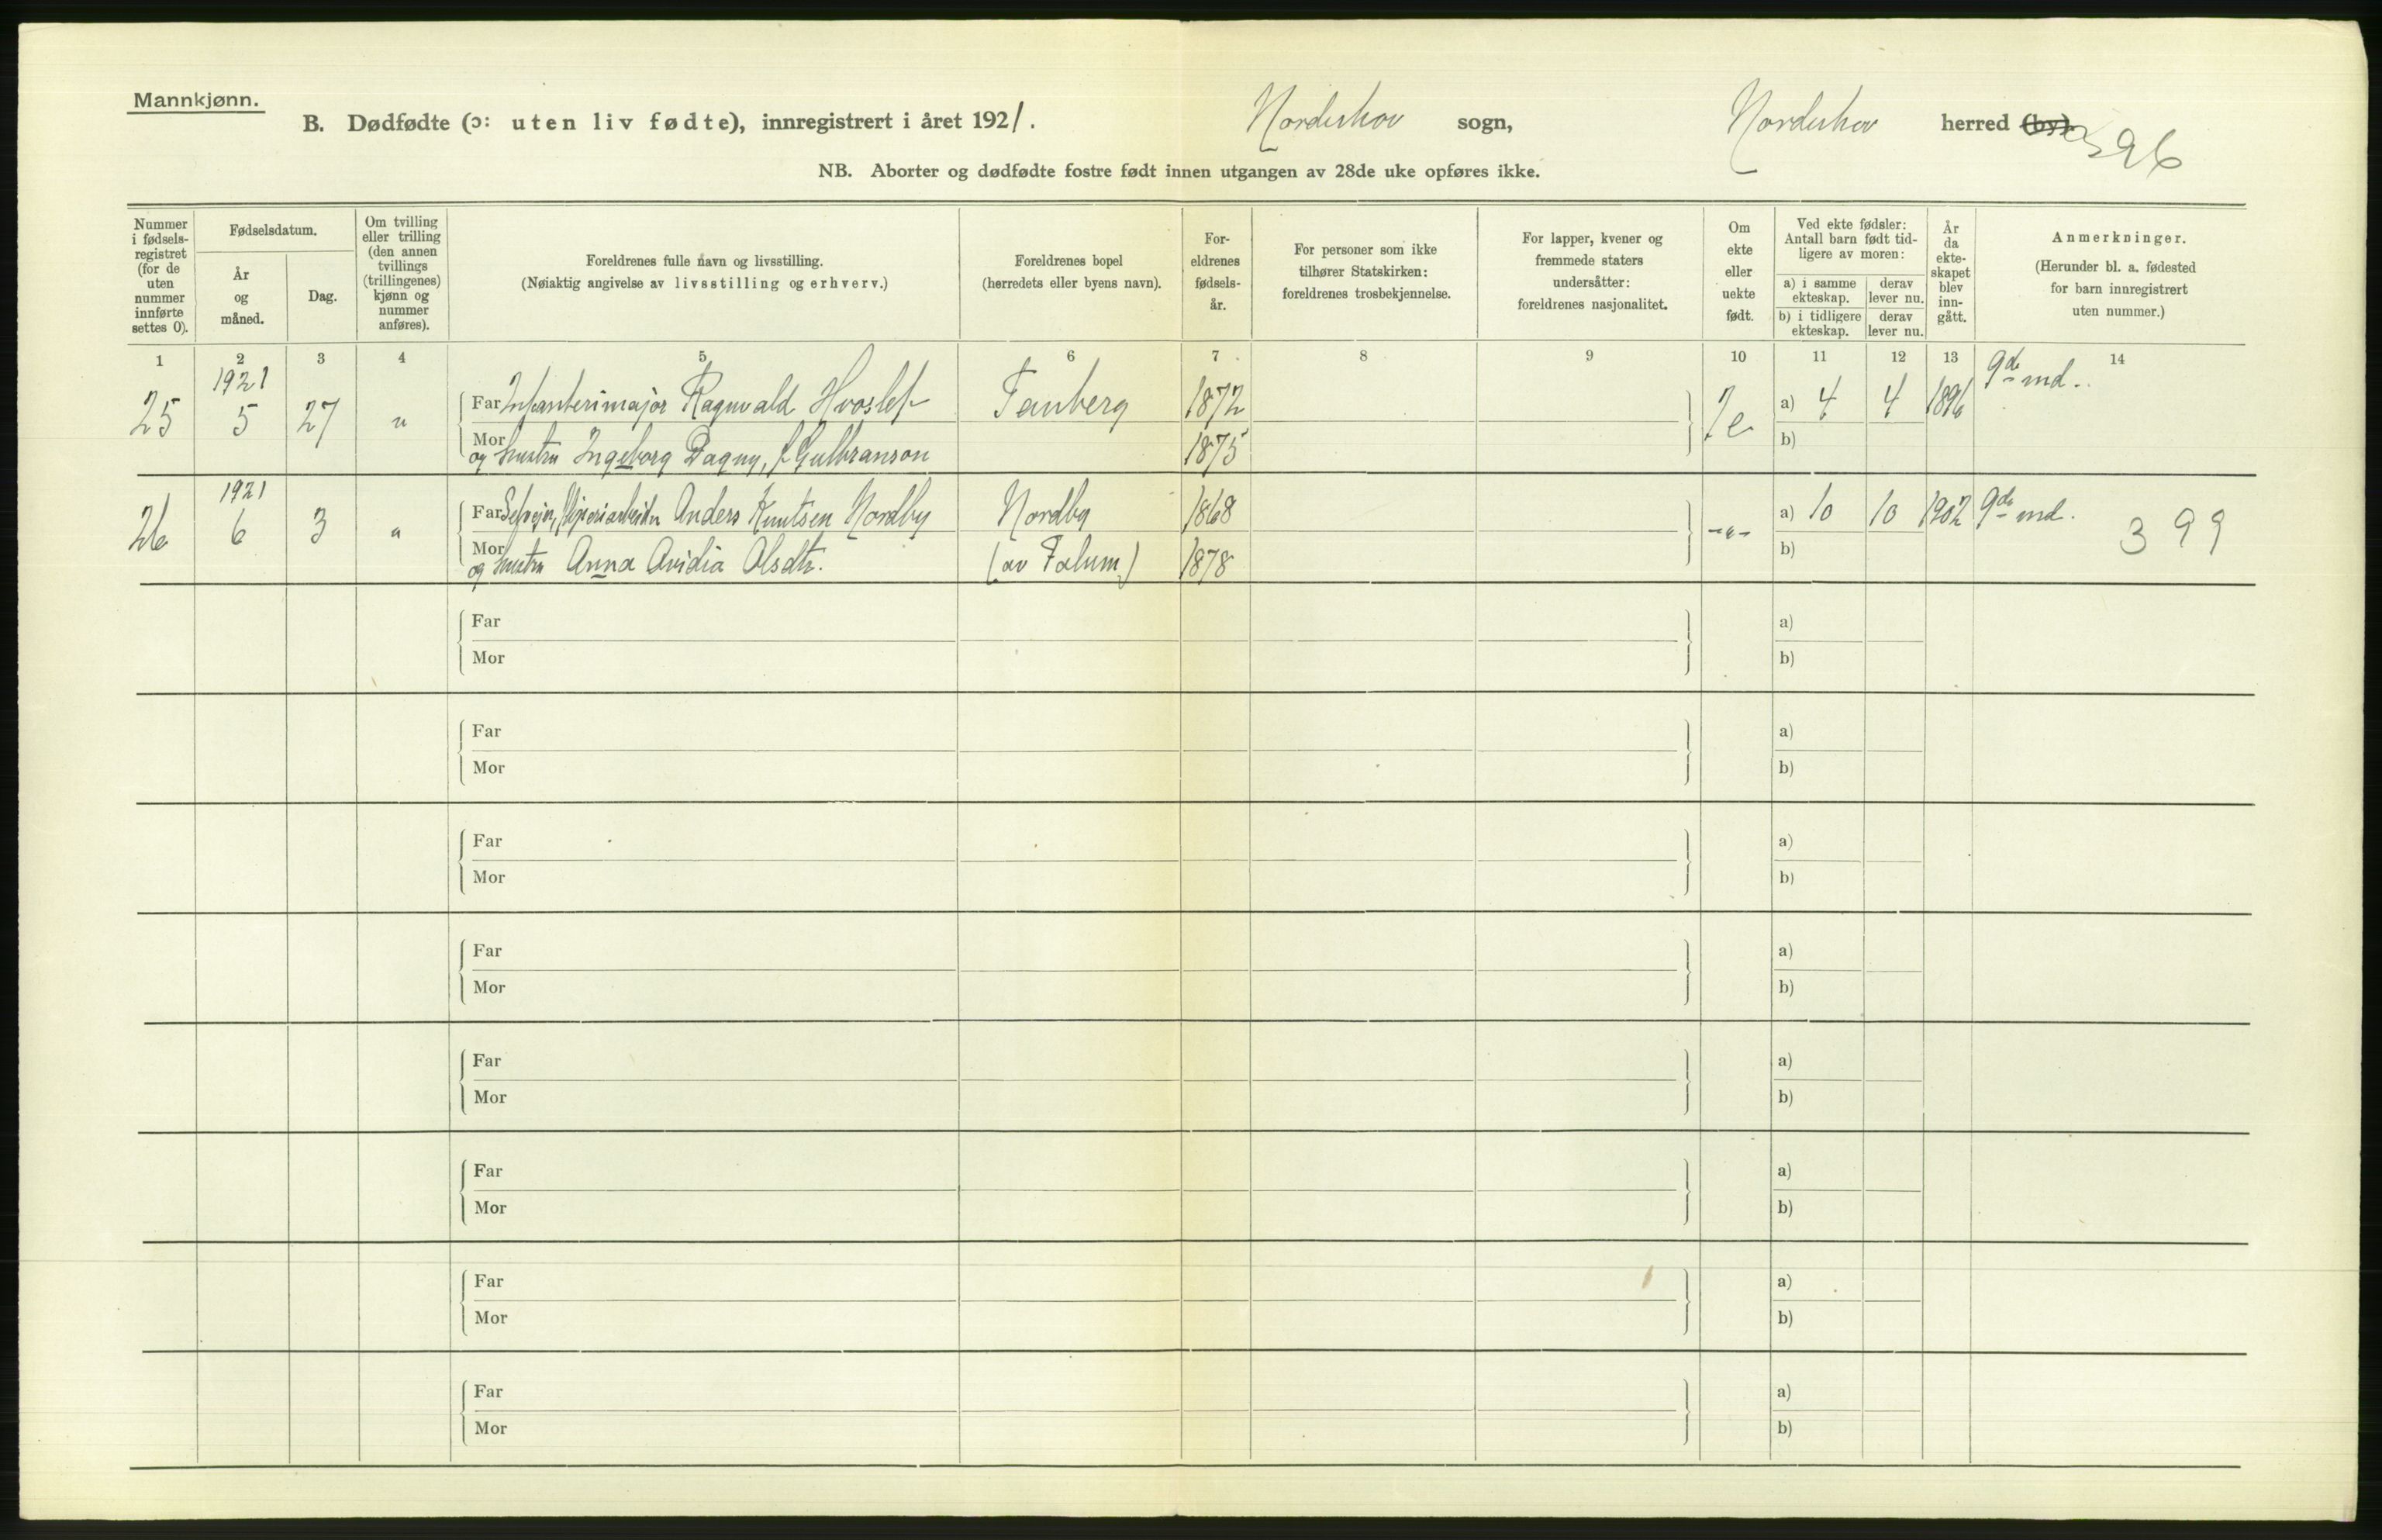 Mannkjønn.
B. Dødfødte (ɔ: uten liv fødte), innregistrert i året 1921. Norderhov sogn, Norderhov herred (by). 396
NB. Aborter og dødfødte fostre født innen utgangen av 28de uke opføres ikke.
Nummer i fødselsregistret (for de uten nummer innførte settes 0).
Fødselsdatum.
År og måned.
Dag.
Om tvilling eller trilling (den annen tvillings (trillingenes) kjønn og nummer anføres).
Foreldrenes fulle navn og livsstilling.
(Nøiaktig angivelse av livsstilling og erhverv.)
Foreldrenes bopel
(herredets eller byens navn).
Foreldrenes fødselsår.
For personer som ikke tilhører Statskirken: foreldrenes trosbekjennelse.
For lapper, kvener og fremmede staters undersåtter: foreldrenes nasjonalitet.
Om ekte eller uekte født.
Ved ekte fødsler: Antall barn født tidligere av moren:
a) i samme ekteskap.
derav lever nu.
b) i tidligere ekteskap.
derav lever nu.
År da ekteskapet blev inngått.
Anmerkninger.
(Herunder bl. a. fødested for barn innregistrert uten nummer.)
1 2 3 4 5 6 7 8 9 10 11 12 13 14
25 1921 5 27 " Far Infanterimajor Ragnvald Hvoslef Tanberg 1872 a) 4 4 1896 9de md.
Mor og hustru Ingeborg Dagny, f Gulbranson 1875 b)
26 1921 6 3 " Far Anders Knutsen Nordby Nordby 1868 -"- a) 10 10 1902 9de md. 399
Mor og hustru Anna Ovidia Olsdtr. (av Folum) 1878 b)
Far a)
Mor b)
Far a)
Mor b)
Far a)
Mor b)
Far a)
Mor b)
Far a)
Mor b)
Far a)
Mor b)
Far a)
Mor b)
Far a)
Mor b)